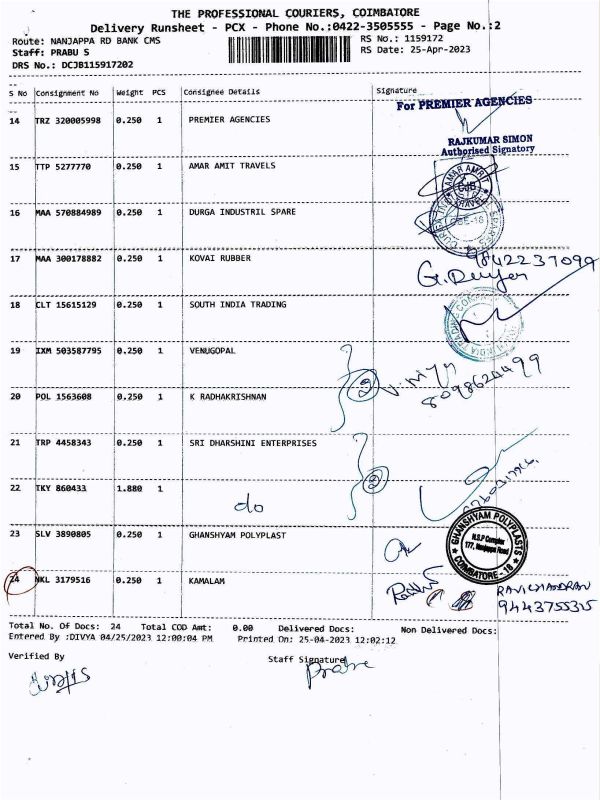 THE PROFESSIONAL COURIERS, COIMBATORE
Delivery Runsheet - PCX - Phone No.:0422-3505555 - Page No.:2
Route: NANJAPPA RD BANK CMS RS No.: 1159172
Staff: PRABU S RS Date: 25-Apr-2023
DRS No.: DCJB115917202
S No Consignment No Weight PCS Consignee Details Signature
For PREMIER AGENCIES
14 TRZ 320005998 0.250 1 PREMIER AGENCIES
RAJKUMAR SIMON
Authorised Signatory
15 TTP 5277770 0.250 1 AMAR AMIT TRAVELS
16 MAA 570884989 0.250 1 DURGA INDUSTRIL SPARE
17 MAA 300178882 0.250 1 KOVAI RUBBER
9842237099
18 CLT 15615129 0.250 1 SOUTH INDIA TRADING
19 IXM 503587795 0.250 1 VENUGOPAL
2
8098624499
20 POL 1563608 0.250 1 K RADHAKRISHNAN
21 TRP 4458343 0.250 1 SRI DHARSHINI ENTERPRISES
2
22 TKY 860433 1.880 1 do
23 SLV 3890805 0.250 1 GHANSHYAM POLYPLAST
GHANSHYAM POLYPLASTS
N.S.P Complex
177, Nanjappa Road
COIMBATORE - 18
24 NKL 3179516 0.250 1 KAMALAM
RAVICHANDRAN
9443755315
Total No. Of Docs: 24 Total COD Amt: 0.00 Delivered Docs: Non Delivered Docs:
Entered By :DIVYA 04/25/2023 12:00:04 PM Printed On: 25-04-2023 12:02:12
Verified By Staff Signature